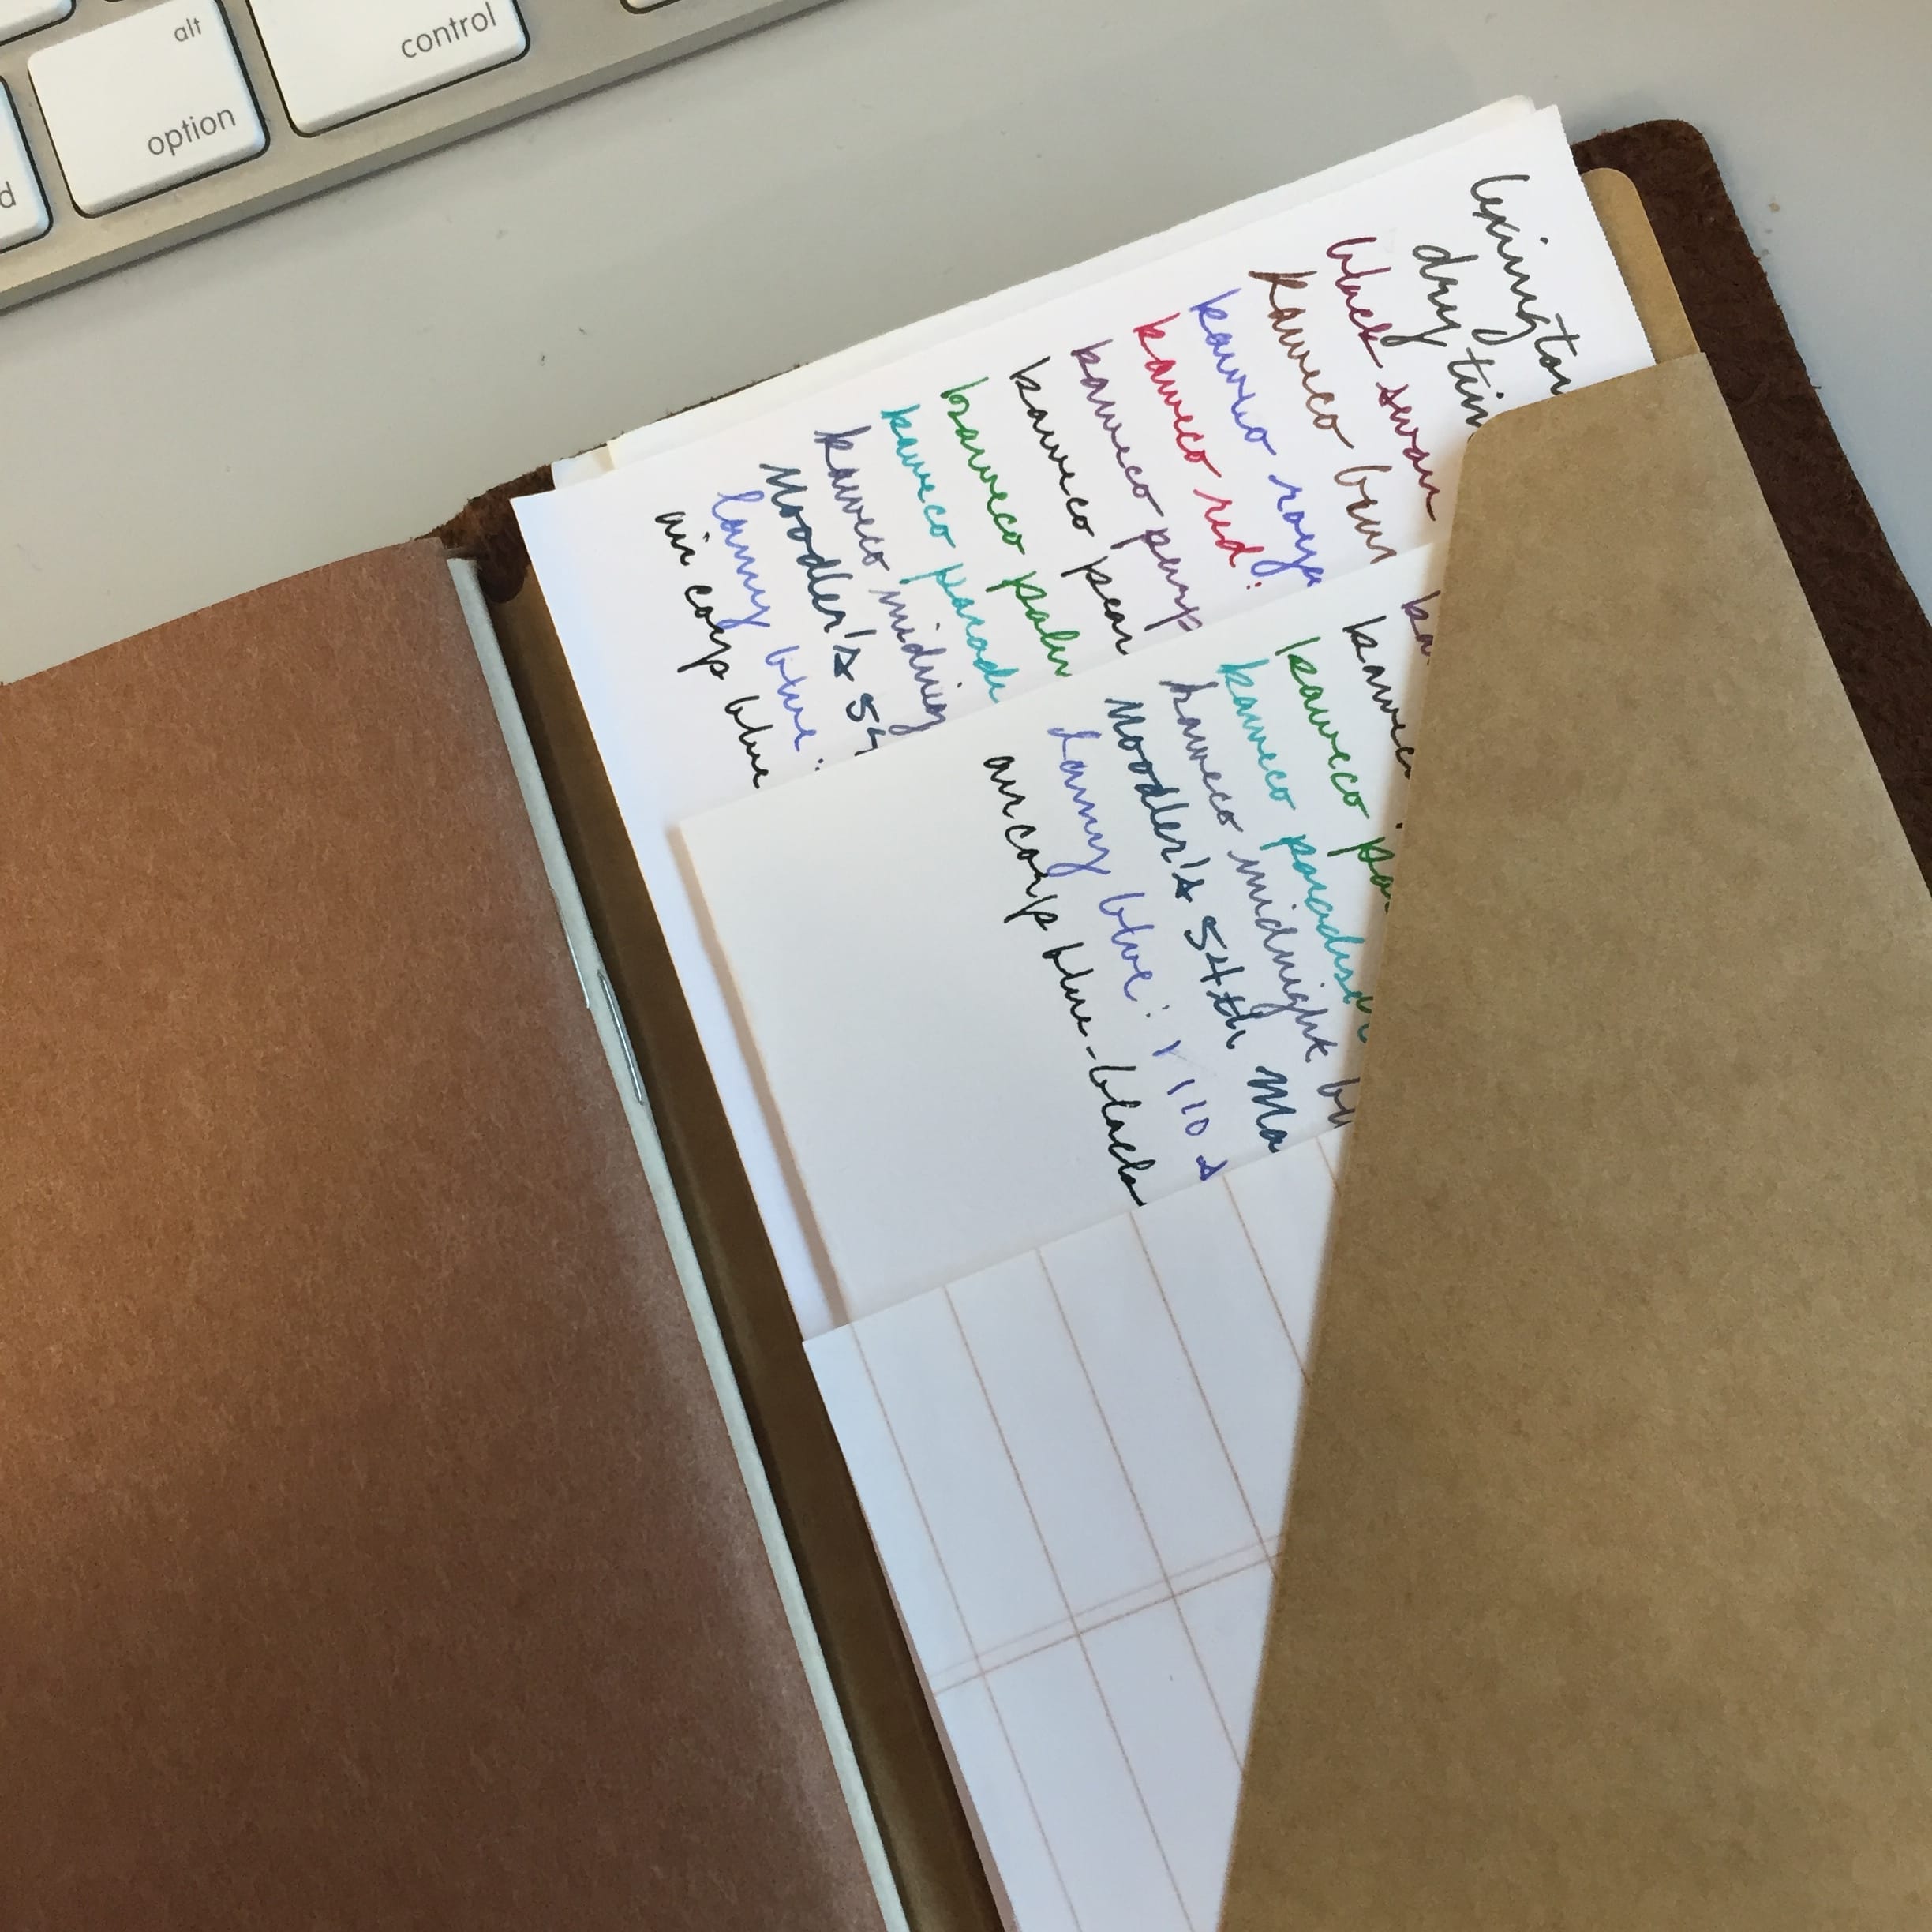 alt
option
control
d
Lexington
dry tim
black swan
kaweco brow
kaweco roya
kaweco red:
kaweco purp
kaweco pear
kaweco palm
kaweco paradi
kaweco midnig
Noodler's 54
Lamy blue:
air corp blue
ka
kawec
kaweco pa
kaweco paradise
kaweco midnight bl
Noodler's 54th Ma
Lamy blue: 110 s
air corp blue-black